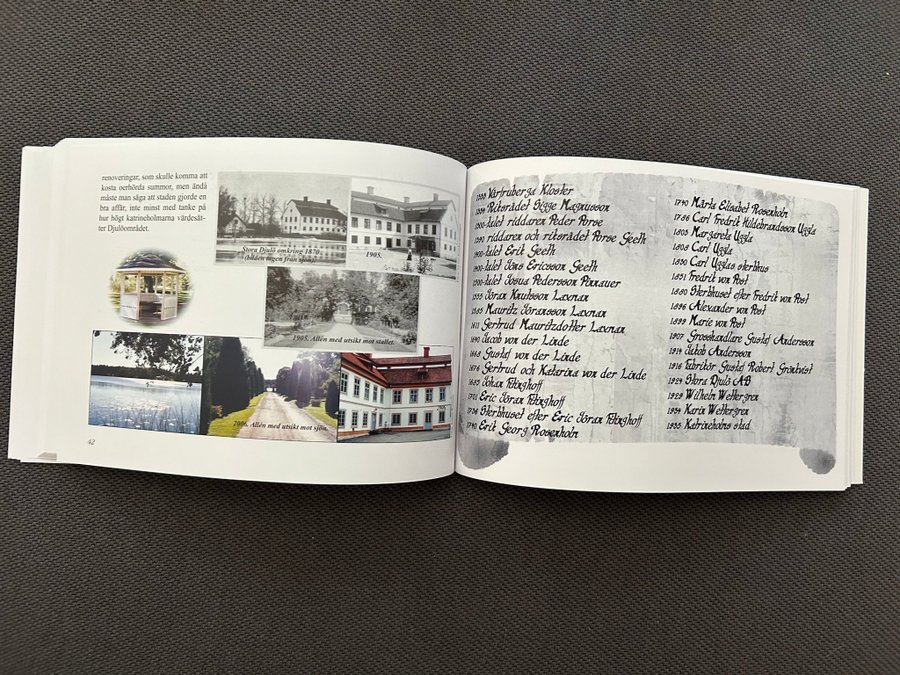 renoveringar, som skulle komma att
kosta oerhörda summor, men ändå
måste man säga att staden gjorde en
bra affär, inte minst med tanke på
hur högt katrineholmarna värdesät-
ter Djulöområdet.
Stora Djulö omkring 1870
(bilden tagen från sjön).
1905.
1905. Allén med utsikt mot stallet.
2006. Allén med utsikt mot sjön.
42
Vårfruberga Kloster
Riksrådet Sigge Magnusson
1300-talet riddaren Peder Porse
riddaren och riksrådet Porse Geeth
1400-talet Erik Geeth
1500-talet Jöns Ericsson Geeth
1500-talet Josua Pedersson Pennauer
Jöran Knutsson Laxman
1585 Mauritz Jöransson Laxman
1611 Gertrud Mauritzdotter Laxman
Jacob von der Linde
1665 Gustaf von der Linde
1676 Gertrud och Katarina von der Linde
1685 Johan Fitinghoff
1701 Eric Jöran Fitinghoff
1736 Sterbhuset efter Eric Jöran Fitinghoff
1740 Erik Georg Rosenholm
1790 Märta Elisabet Rosenholm
1786 Carl Fredrik Hildebrandsson Uggla
1805 Margareta Uggla
1808 Carl Uggla
1850 Carl Ugglas sterbhus
1851 Fredrik von Post
1880 Sterbhuset efter Fredrik von Post
1896 Alexander von Post
1899 Marie von Post
1907 Grosshandlare Gustaf Andersson
1914 Jakob Andersson
1916 Fabrikör Gustaf Robert Grönkvist
1924 Stora Djulö AB
1929 Wilhelm Wettergren
1934 Karin Wettergren
Katrineholms stad